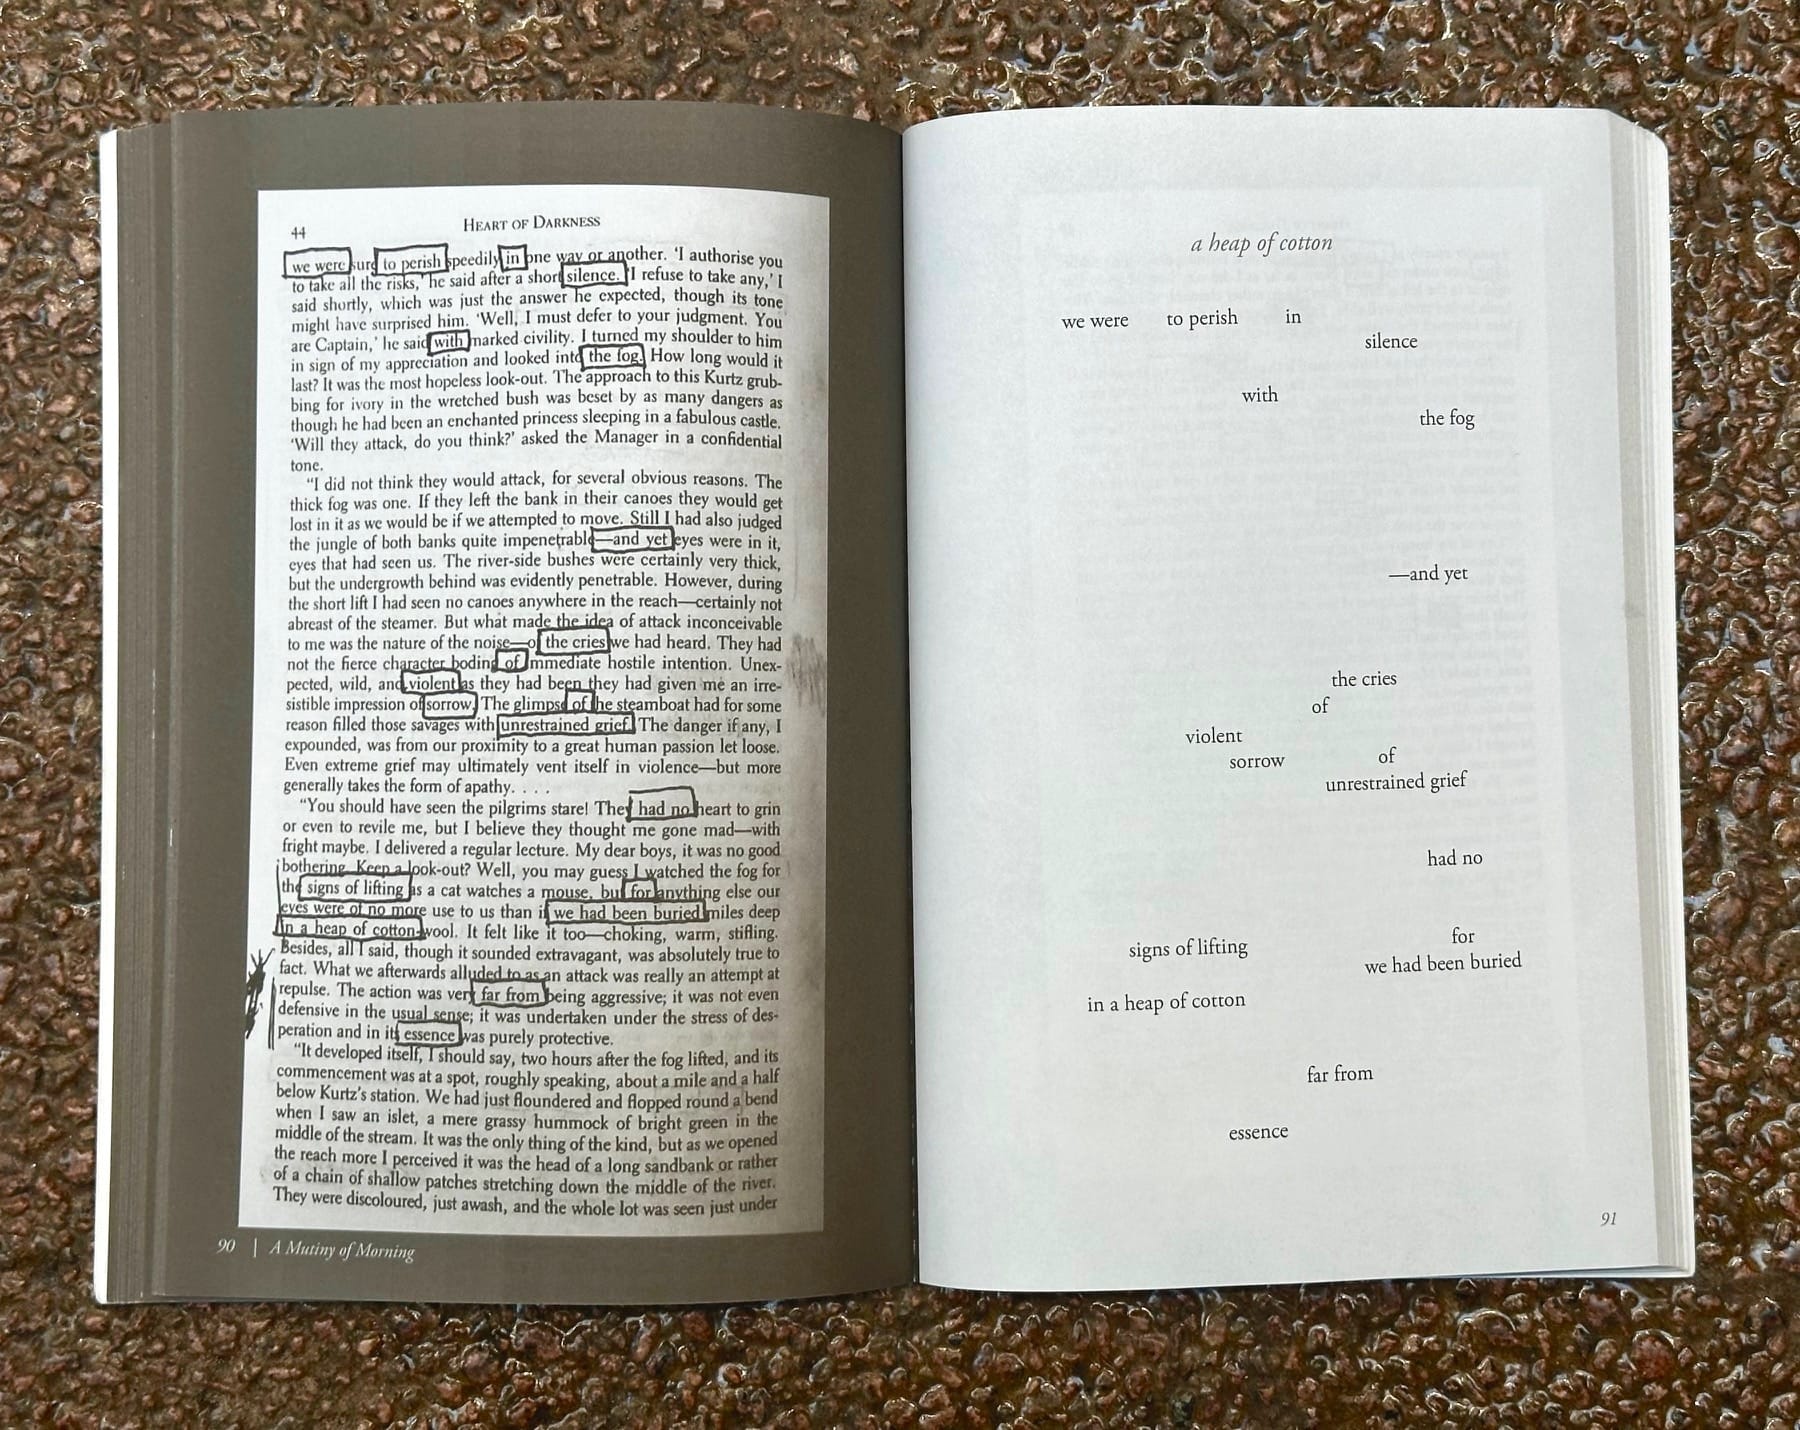 44
HEART OF DARKNESS
we were sure to perish speedily in one way or another. 'I authorise you
to take all the risks,' he said after a short silence. 'I refuse to take any,' I
said shortly, which was just the answer he expected, though its tone
might have surprised him. 'Well, I must defer to your judgment. You
are Captain,' he said with marked civility. I turned my shoulder to him
in sign of my appreciation and looked into the fog. How long would it
last? It was the most hopeless look-out. The approach to this Kurtz grub-
bing for ivory in the wretched bush was beset by as many dangers as
though he had been an enchanted princess sleeping in a fabulous castle.
'Will they attack, do you think?' asked the Manager in a confidential
tone.
"I did not think they would attack, for several obvious reasons. The
thick fog was one. If they left the bank in their canoes they would get
lost in it as we would be if we attempted to move. Still I had also judged
the jungle of both banks quite impenetrable—and yet eyes were in it,
eyes that had seen us. The river-side bushes were certainly very thick,
but the undergrowth behind was evidently penetrable. However, during
the short lift I had seen no canoes anywhere in the reach—certainly not
abreast of the steamer. But what made the idea of attack inconceivable
to me was the nature of the noise—of the cries we had heard. They had
not the fierce character boding of immediate hostile intention. Unex-
pected, wild, and violent as they had been they had given me an irre-
sistible impression of sorrow. The glimpse of the steamboat had for some
reason filled those savages with unrestrained grief. The danger if any, I
expounded, was from our proximity to a great human passion let loose.
Even extreme grief may ultimately vent itself in violence—but more
generally takes the form of apathy. . . .
"You should have seen the pilgrims stare! They had no heart to grin
or even to revile me, but I believe they thought me gone mad—with
fright maybe. I delivered a regular lecture. My dear boys, it was no good
bothering. Keep a look-out? Well, you may guess I watched the fog for
the signs of lifting as a cat watches a mouse, but for anything else our
eyes were of no more use to us than if we had been buried miles deep
in a heap of cotton-wool. It felt like it too—choking, warm, stifling.
Besides, all I said, though it sounded extravagant, was absolutely true to
fact. What we afterwards alluded to as an attack was really an attempt at
repulse. The action was very far from being aggressive; it was not even
defensive in the usual sense; it was undertaken under the stress of des-
peration and in its essence was purely protective.
"It developed itself, I should say, two hours after the fog lifted, and its
commencement was at a spot, roughly speaking, about a mile and a half
below Kurtz's station. We had just floundered and flopped round a bend
when I saw an islet, a mere grassy hummock of bright green in the
middle of the stream. It was the only thing of the kind, but as we opened
the reach more I perceived it was the head of a long sandbank or rather
of a chain of shallow patches stretching down the middle of the river.
They were discoloured, just awash, and the whole lot was seen just under
90 | A Mutiny of Morning
a heap of cotton
we were to perish in
silence
with
the fog
—and yet
the cries
of
violent
sorrow of
unrestrained grief
had no
signs of lifting for
we had been buried
in a heap of cotton
far from
essence
91